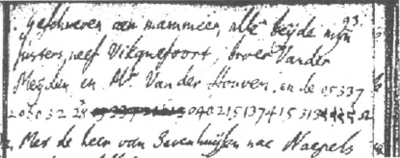 geschreven aen mammien, alle beijde mijn 23.
susters, neef Vicquefoort, broer Vander
Meijden en Mr Van der Hoeven, en de 05337
202032 28 040215137415313
Met de heer van Sevenhuijsen nae Naepels